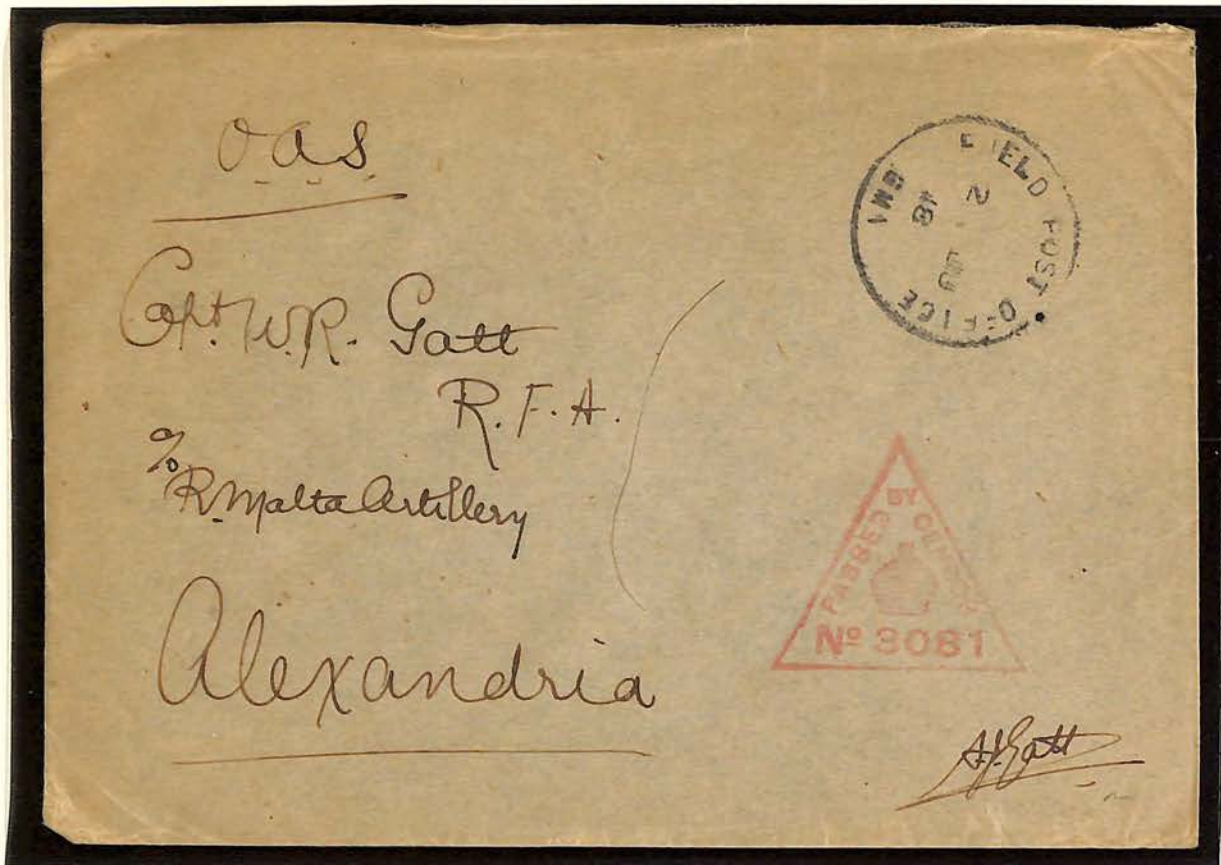 O a S
Capt. W.R. Gatt
R.F.A.
c/o
R. Malta Artillery
Alexandria
FIELD POST OFFICE
2
18
PASSED BY CENSOR
Nº 3081
A.J. Gatt